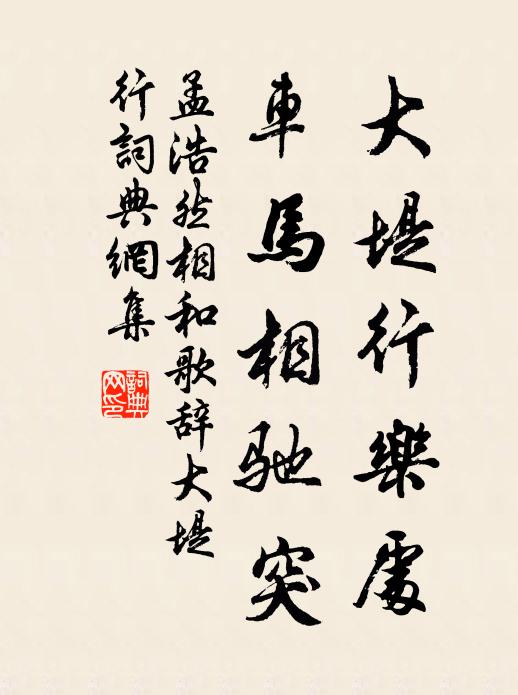 大堤行樂處
車馬相馳突
孟浩然相和歌辞大堤
行詞典網集
詞典
网印